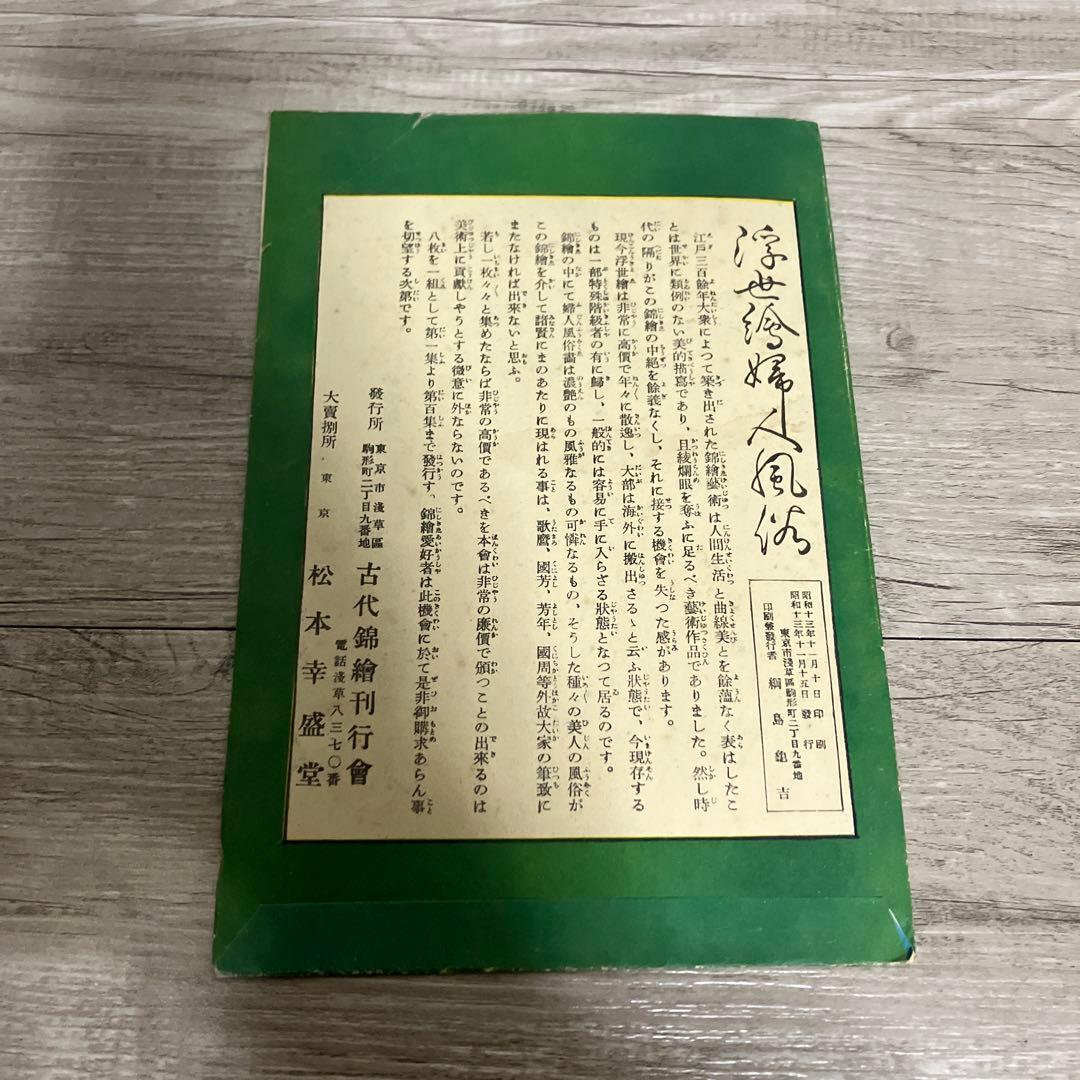 浮世繪婦人風俗
昭和十三年十一月十日印刷
昭和十三年十一月十五日發行
東京市淺草區駒形町二丁目九番地
印刷兼發行者 綱島龜吉
江戸三百餘年大衆によつて築き出された錦繪藝術は人間生活と曲線美とを餘薀なく表はしたこ
とは世界に類例のない美的描寫であり、且綾爛眼を奪ふに足るべき藝術作品でありました。然し時
代の隔りがこの錦繪の中絶を餘義なくし、それに接する機會を失つた感があります。
現今浮世繪は非常に高價で年々に散逸し、大部は海外に搬出さるゝと云ふ狀態で、今現存する
ものは一部特殊階級者の有に歸し、一般的には容易に手に入らさる狀態となつて居るのです。
錦繪の中にて婦人風俗畵は濃艶のもの風雅なるもの可憐なるもの、そうした種々の美人の風俗が
この錦繪を介して諸賢にまのあたりに現はれる事は、歌麿、國芳、芳年、國周等外故大家の筆致に
またなければ出來ないと思ふ。
若し一枚々々と集めたならば非常の高價であるべきを本會は非常の廉價で頒つことの出來るのは
美術上に貢獻しやうとする微意に外ならないのです。
八枚を一組として第一集より第百集まで發行す、錦繪愛好者は此機會に於て是非御購求あらん事
を切望する次第です。
發行所 東京市淺草區駒形町二丁目九番地 古代錦繪刊行會
電話淺草八三七〇番
大賣捌所 東京 松本幸盛堂